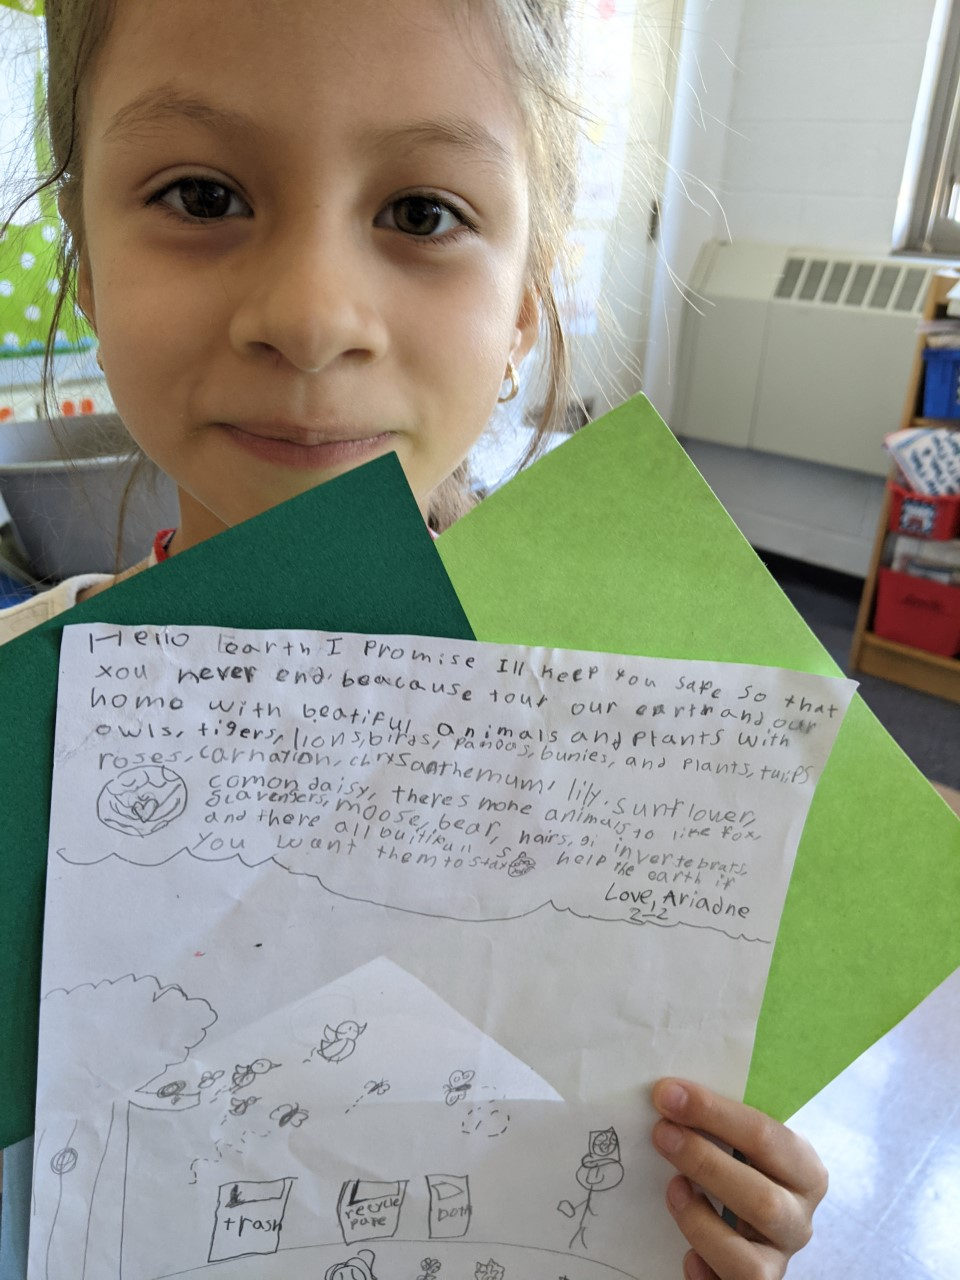 Hello Earth I Promise Ill keep you safe so that
you never end. beacause tour our earth and our
home with beatiful animals and plants with
owls, tigers, lions, birds, pandas, bunies, and plants, tulips
roses, carnation, chrysanthemum, lily, sunflower,
comon daisy, theres more animals to like fox
scavengers, moose, bear, hairs, gi invertebrats,
and there all buitifull so help the earth if
you want them to stay
Love, Ariadne
2-2
trash
recycle
pape